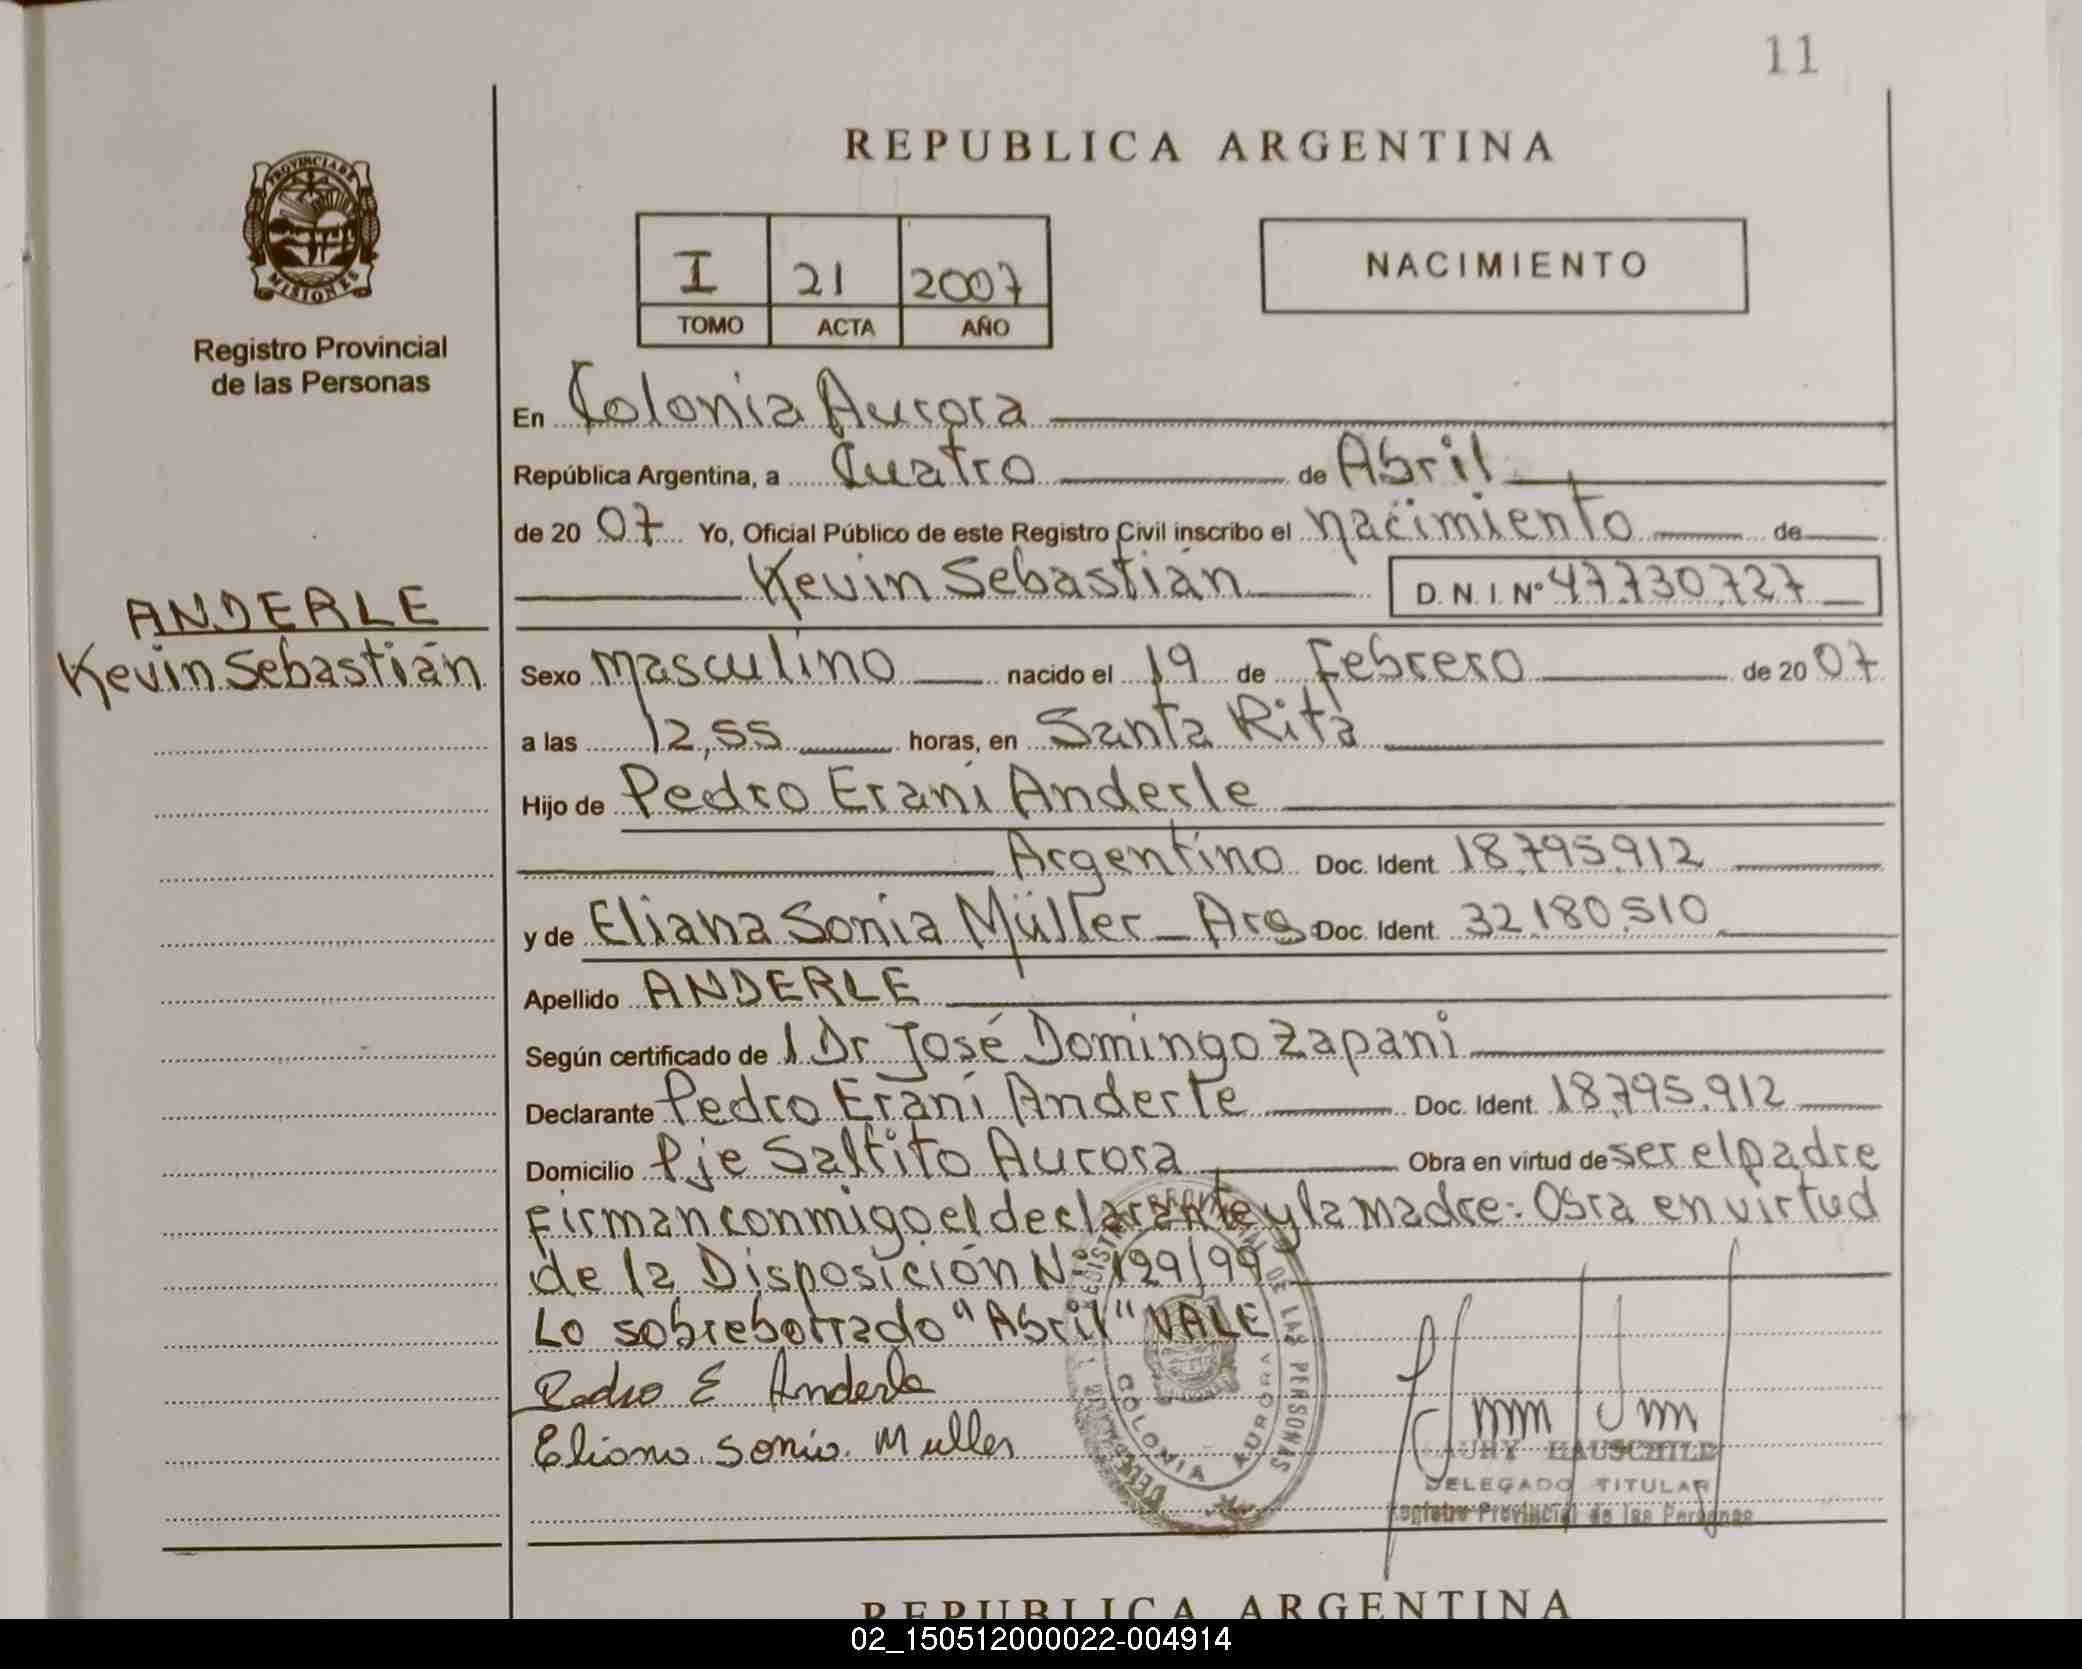 11
REPUBLICA ARGENTINA
PROVINCIA DE
MISIONES
Registro Provincial
de las Personas
I 21 2007
TOMO ACTA AÑO
NACIMIENTO
En Colonia Aurora
República Argentina, a Cuatro de Abril
de 20 07 Yo, Oficial Público de este Registro Civil inscribo el nacimiento de
Kevin Sebastián D.N.I. Nº 47.730.727
ANDERLE
Kevin Sebastián
Sexo masculino nacido el 19 de Febrero de 20 07
a las 12,55 horas, en Santa Rita
Hijo de Pedro Erani Anderle
Argentino Doc. Ident. 18.795.912
y de Eliana Sonia Müller - Arg Doc. Ident. 32.180.510
Apellido ANDERLE
Según certificado de l Dr José Domingo Zapani
Declarante Pedro Erani Anderle Doc. Ident. 18.795.912
Domicilio Pje Saltito Aurora Obra en virtud de ser el padre
Firman conmigo el declarante y la madre: Obra en virtud
de la Disposición Nº 199/99
Lo sobreborrado "Abril" VALE
Pedro E Anderle
Eliana Sonia Muller
DE LAS PERSONAS
COLONIA AURORA
HAUSCHILD
DELEGADO TITULAR
Registro Provincial de las Personas
REPUBLICA ARGENTINA
02_150512000022-004914